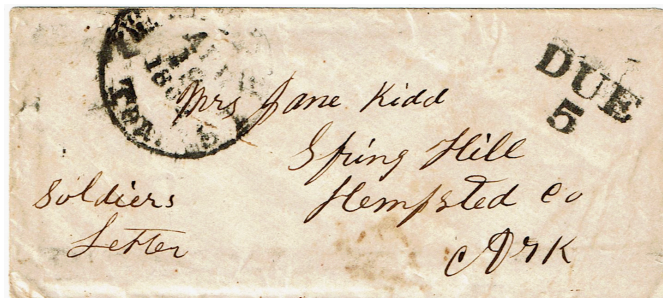 DUE
5
Mrs Jane Kidd
Spring Hill
Hempsted Co
Ark
Soldiers
Letter